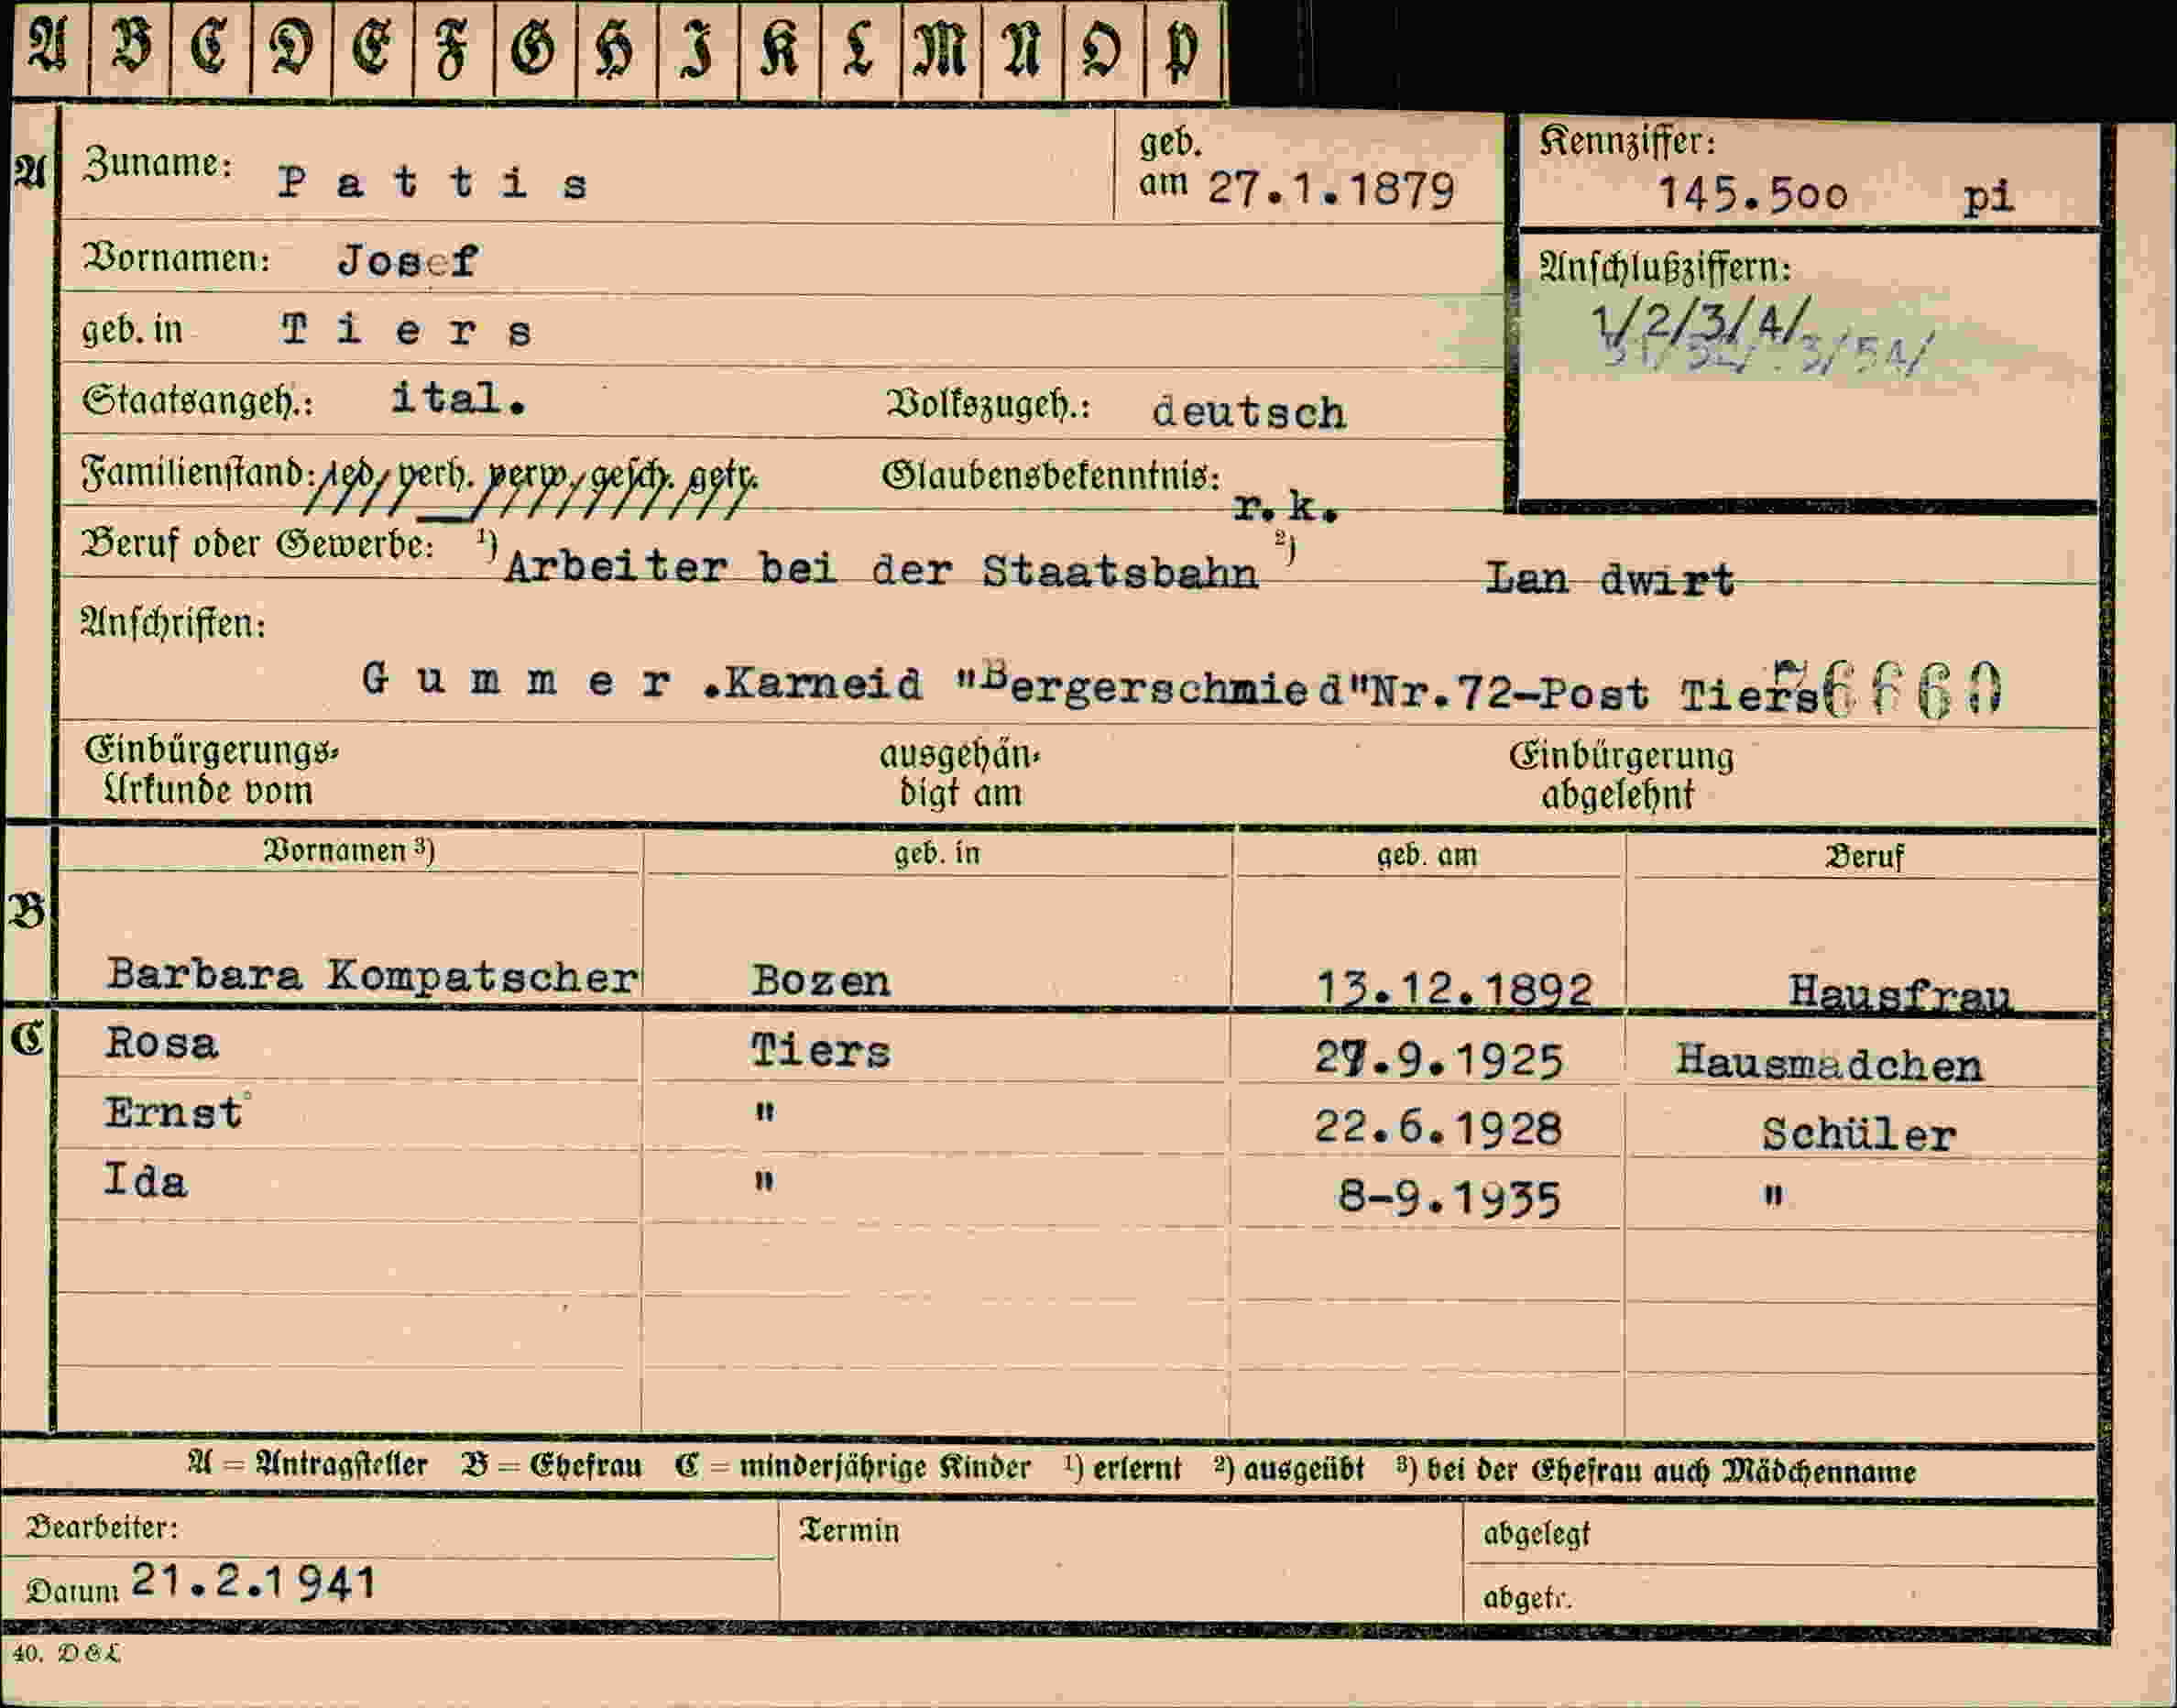 A B C D E F G H I K L M N O P
A Zuname: Pattis geb. am 27.1.1879 Kennziffer: 145.500 pi
Vornamen: Josef Anschlußziffern:
1/2/3/4/
geb. in Tiers
Staatsangeh.: ital. Volkszugeh.: deutsch
Familienstand: led. verh. verw. gesch. getr. Glaubensbekenntnis: r.k.
Beruf oder Gewerbe: ¹) Arbeiter bei der Staatsbahn ²) Lan dwirt
Anschriften:
Gummer .Karneid "Bergerschmied"Nr.72-Post Tiers
Einbürgerungs-Urkunde vom ausgehän-digt am Einbürgerung abgelehnt
Vornamen ³) geb. in geb. am Beruf
B Barbara Kompatscher Bozen 13.12.1892 Hausfrau
C Rosa Tiers 27.9.1925 Hausmädchen
Ernst " 22.6.1928 Schüler
Ida " 8-9.1935 "
A = Antragsteller B = Ehefrau C = minderjährige Kinder ¹) erlernt ²) ausgeübt ³) bei der Ehefrau auch Mädchenname
Bearbeiter: Termin abgelegt
Datum 21.2.1941 abgetr.
40. D&L